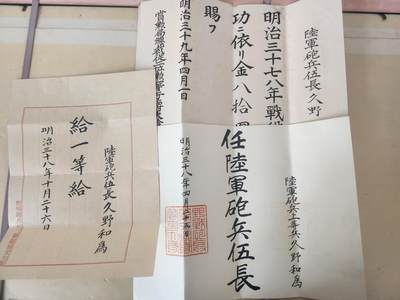 陸軍砲兵伍長久野
明治三十七八年戦役
功ニ依リ金八拾
賜フ
明治三十九年四月一日
陸軍砲兵上等兵久野和為
任陸軍砲兵伍長
明治三十八年四月二十五日
陸軍砲兵伍長久野和為
給一等給
明治三十八年十月二十六日